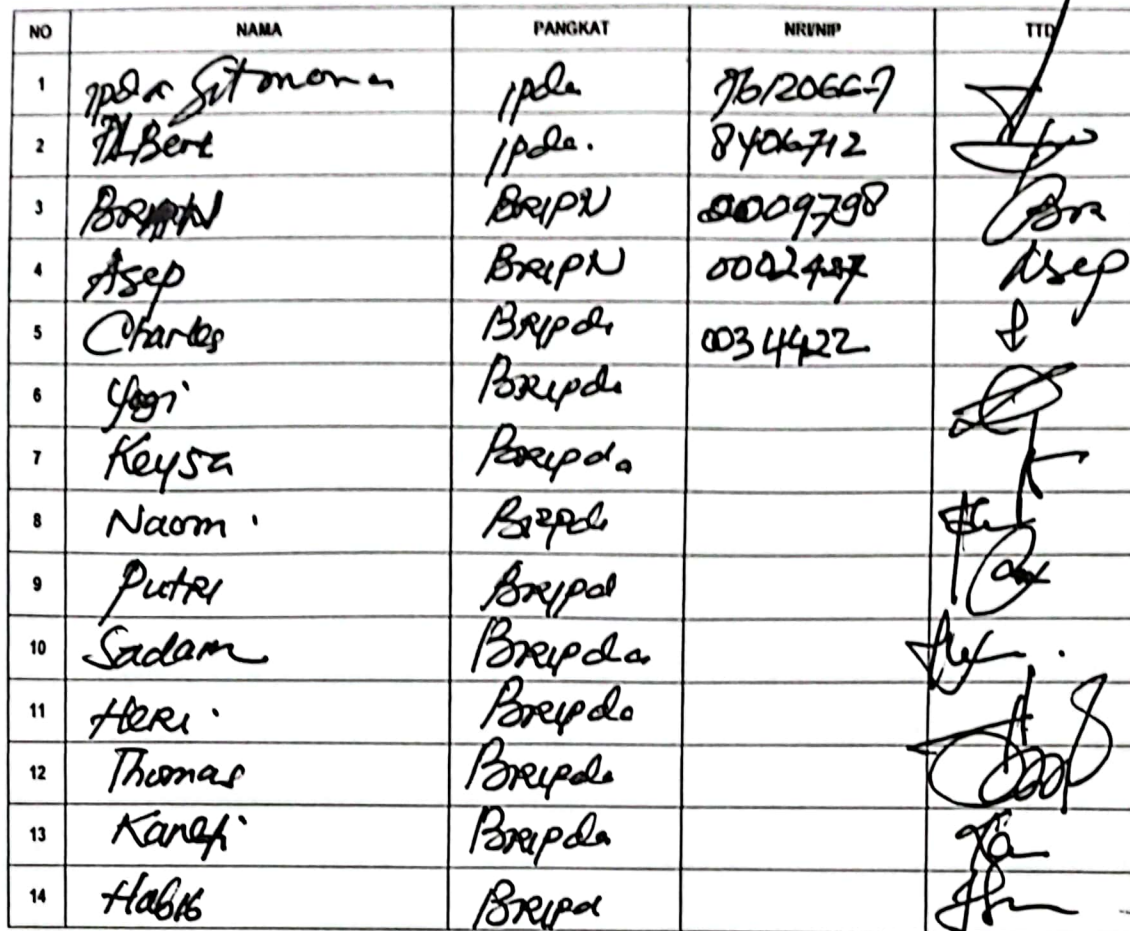 NO NAMA PANGKAT NRI/NIP TTD
1 ipda Sitmoma ipda
2 Albert ipda. 8406712
3 BRIPN 00009798
4 Asep BRIPN Asep
5 Charles BRIpda 0034422
6 Yogi BRIpda
7 Keysa BRIpda
8 Naomi BRIpda
9 PutRI BRIpd
10 Sadam BRIpda
11 HeRi BRIpda
12 Thomas BRIpda
13 BRIpda
14 Habib BRIpd